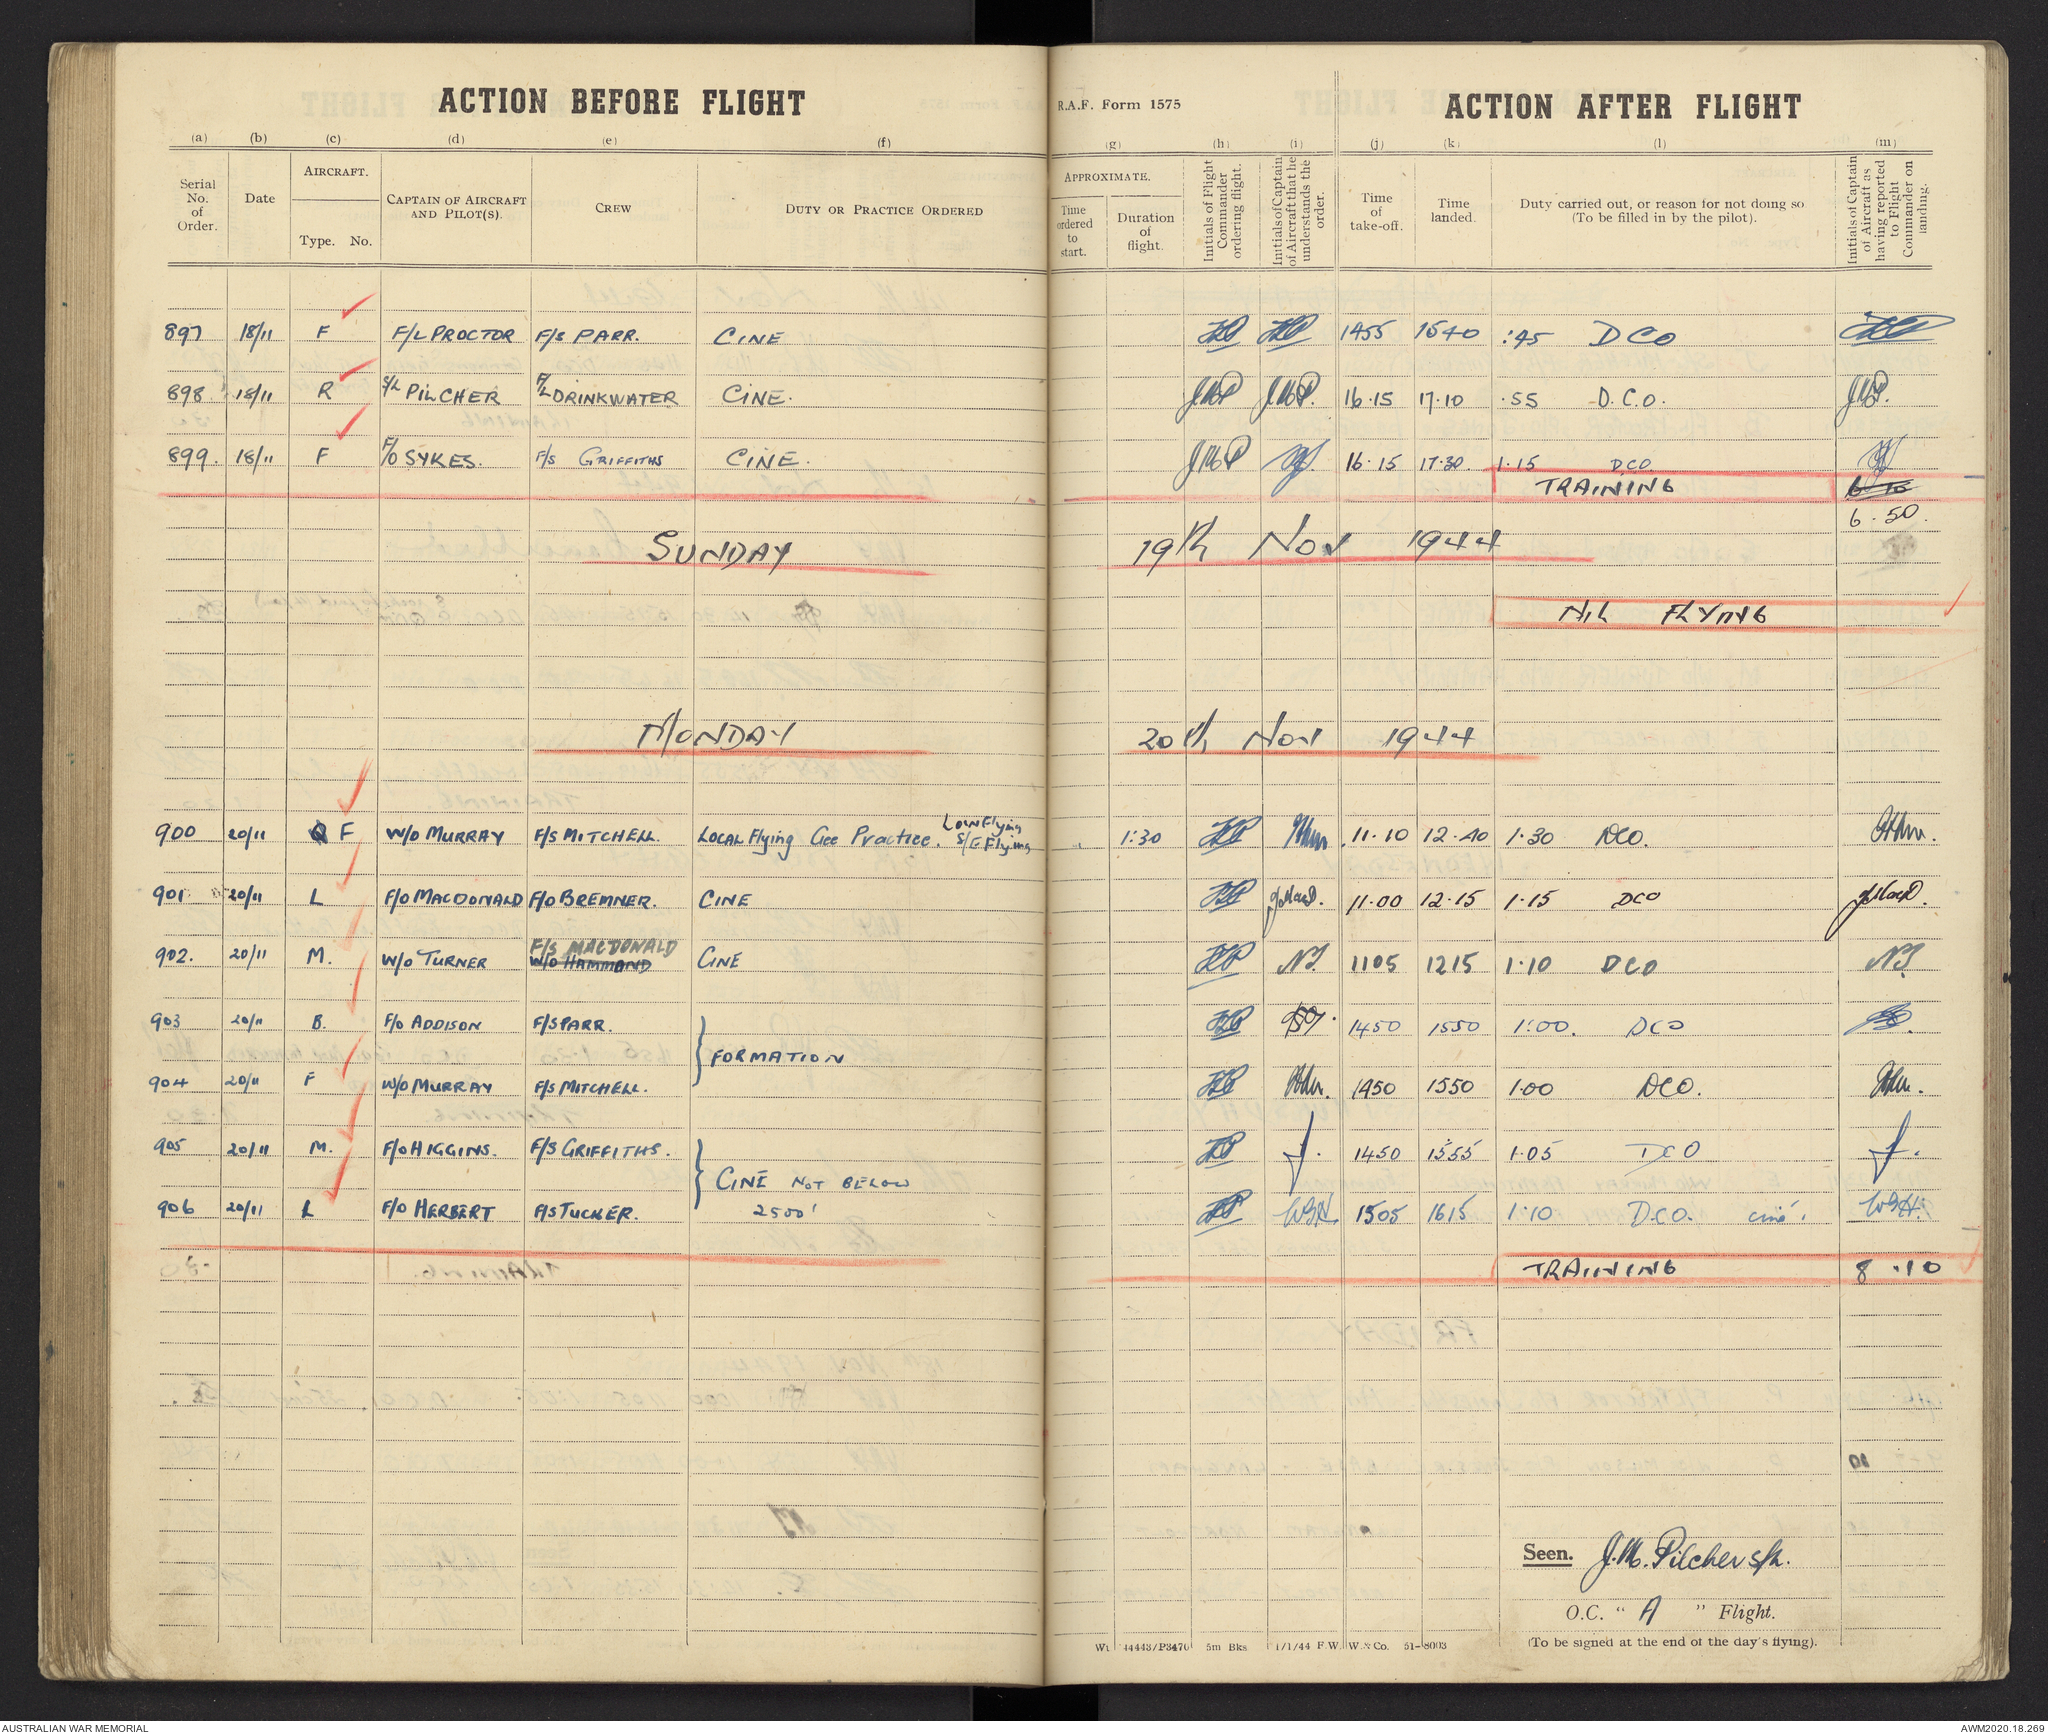 ACTION BEFORE FLIGHT
R.A.F. Form 1575
ACTION AFTER FLIGHT
(a) (b) (c) (d) (e) (f) (g) (h) (i) (j) (k) (l) (m)
Serial No. of Order.
Date
AIRCRAFT.
Type. No.
CAPTAIN OF AIRCRAFT AND PILOT(S).
CREW
DUTY OR PRACTICE ORDERED
APPROXIMATE.
Time ordered to start.
Duration of flight.
Initials of Flight Commander ordering flight.
Initials of Captain of Aircraft that he understands the order.
Time of take-off.
Time landed.
Duty carried out, or reason for not doing so (To be filled in by the pilot).
Initials of Captain of Aircraft as having reported to Flight Commander on landing.
897 18/11 F F/L PROCTOR F/S PARR. CINE 1455 1540 :45 DCO
898 18/11 R S/L PILCHER F/L DRINKWATER CINE. JMP JMP. 16.15 17.10 .55 D.C.O. JMP.
899. 18/11 F F/O SYKES. F/S GRIFFITHS CINE. JMP 16.15 17.30 1.15 DCO
TRAINING
6.50.
SUNDAY 19th Nov 1944
NIL FLYING
MONDAY 20th Nov 1944
900 20/11 F W/O MURRAY F/S MITCHELL. LOCAL Flying Gee Practice. Low Flying S/E Flying 1:30 11.10 12.40 1.30 DCO.
901 20/11 L F/O MACDONALD F/O BREMNER. CINE 11.00 12.15 1.15 DCO
902. 20/11 M. W/O TURNER F/S MACDONALD W/O HAMMOND CINE NT. 1105 1215 1.10 DCO NT.
903 20/11 B. F/O ADDISON F/S PARR. FORMATION 1450 1550 1:00. DCO
904 20/11 F W/O MURRAY F/S MITCHELL. 1450 1550 1.00 DCO.
905 20/11 M. F/O HIGGINS. F/S GRIFFITHS. CINE NOT BELOW 2500' 1450 1555 1.05 DCO
906 20/11 L F/O HERBERT F/S TUCKER. 1505 1615 1.10 D.C.O. cine. WGH.
TRAINING 8.10
Seen. J.M. Pilcher S/L.
O.C. " A " Flight.
(To be signed at the end of the day's flying).
Wt 44443/P3470 5m Bks 1/1/44 F.W. W. & Co. 51-8003
AUSTRALIAN WAR MEMORIAL
AWM2020.18.269